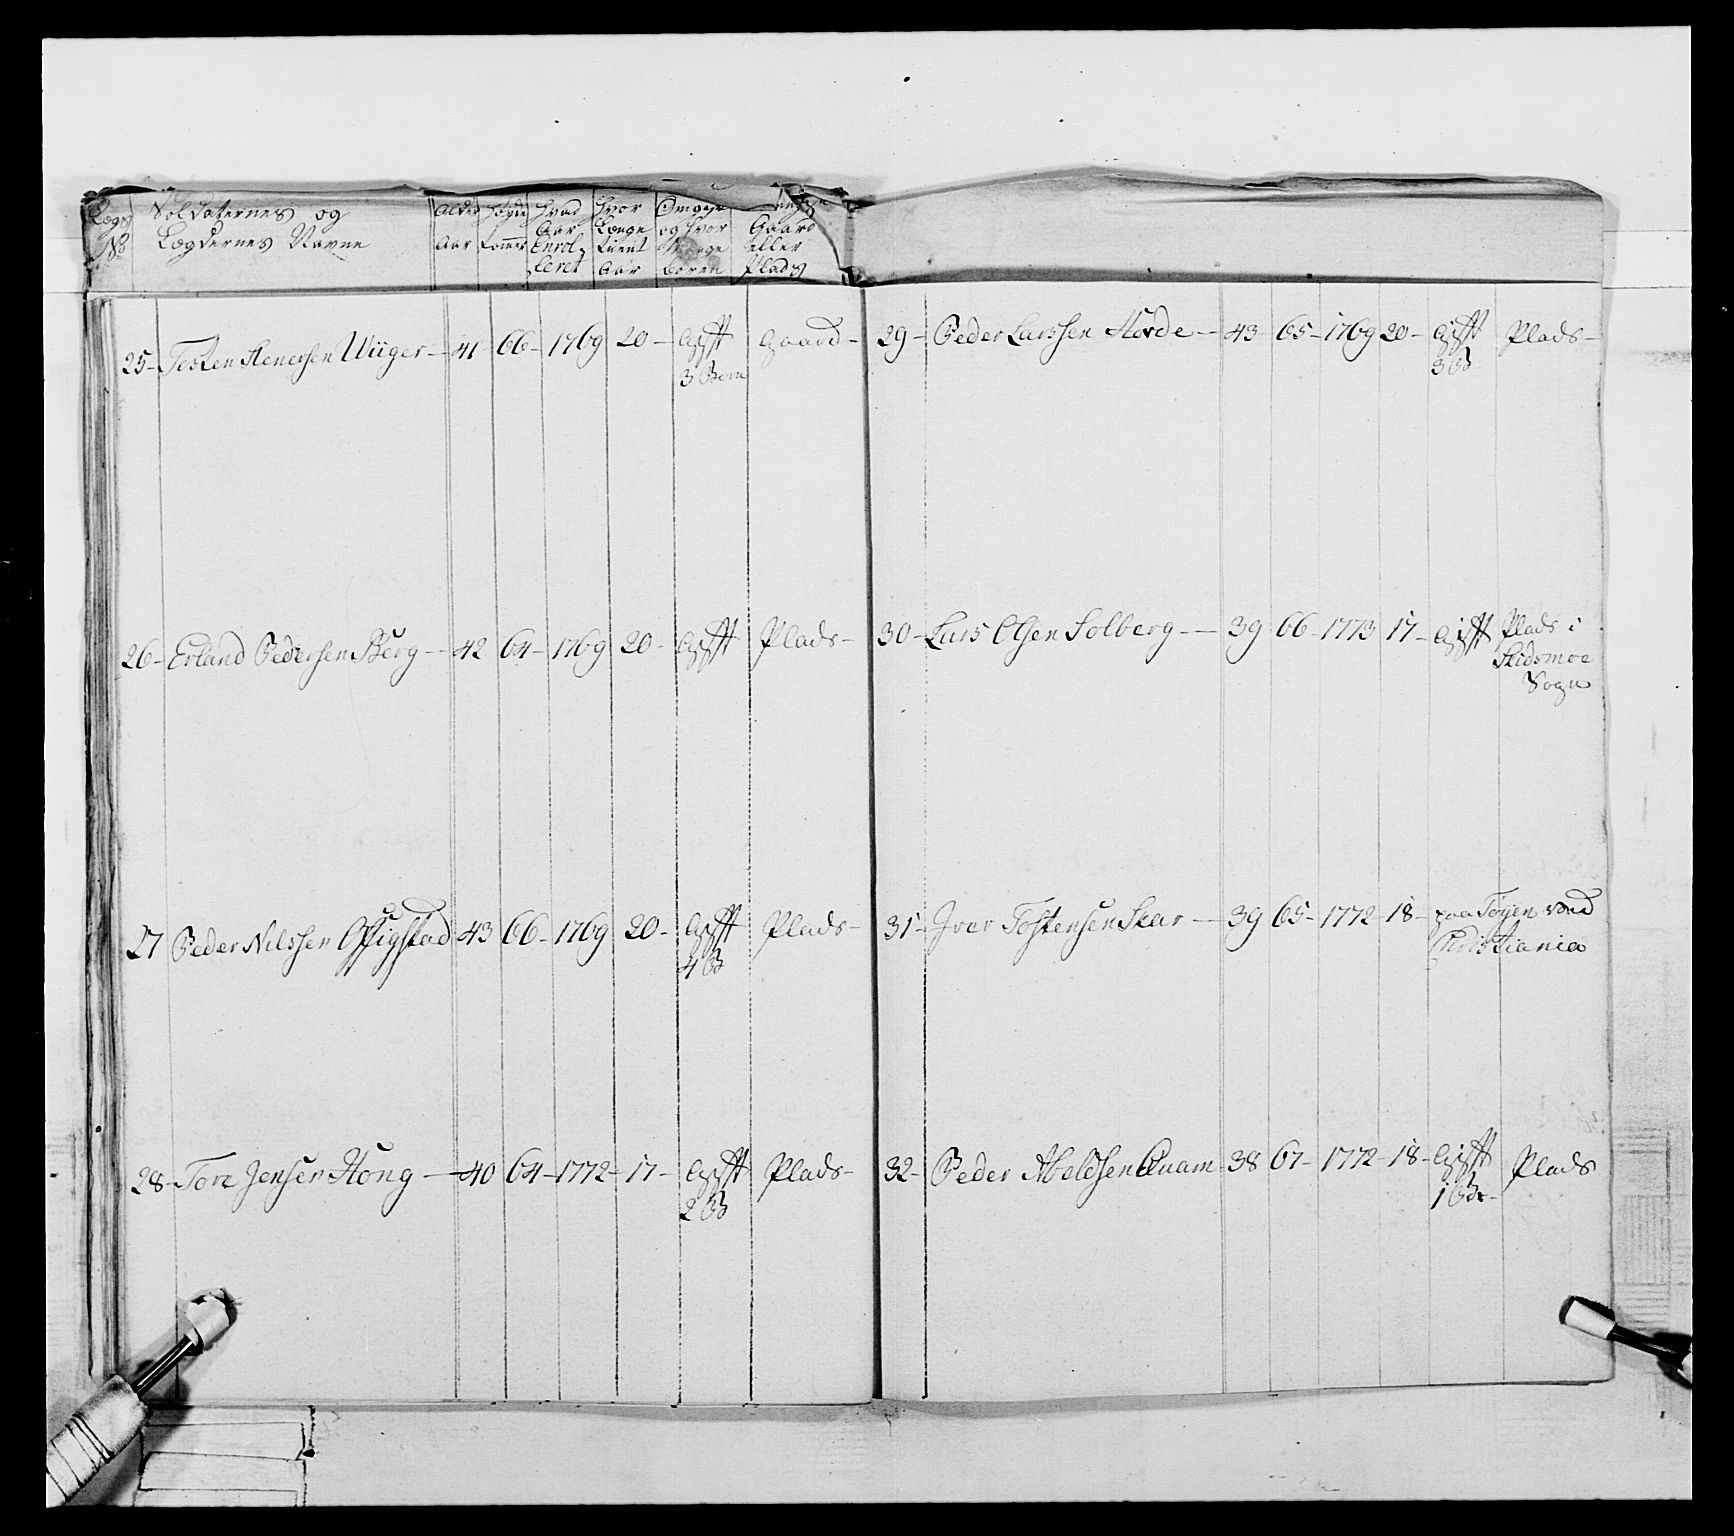 Lægd No
Soldaternes og
Lægdernes Navne
Alder
Aar
Høyde
tommer
Hvad
Aar
Enrol-
leret
Hvor
Længe
tient
Aar
Om gift
og hvor
Mange
børen
Gaard
eller
Plads
25- Tosten Stenersen Wiiger- 41- 66- 1769 20- Gifft Gaard-
3 Børn
26- Erland Pedersen Berg- 42 64- 1769 20- Gifft Plads-
27 Peder Nilssen Opsigstad 43 66- 1769 20- Gifft Plads-
4 B
28- Tore Jensen Hong- 40 64- 1772- 17- Gifft Plads-
2 B
29- Peder Larssen Horde- 43- 65- 1769 20- Gifft Plads-
3 B
30- Lars Olsen Solberg- 39 66- 1773 17- Gifft Plads i
Skidsmoe
Sogn
31- Iver Tostensen Skar- 39 65- 1772- 18- paa Tøyen ved
Christiania
32- Peder Abeldsen Quam 38 67- 1772- 18- Gifft Plads
1 B-